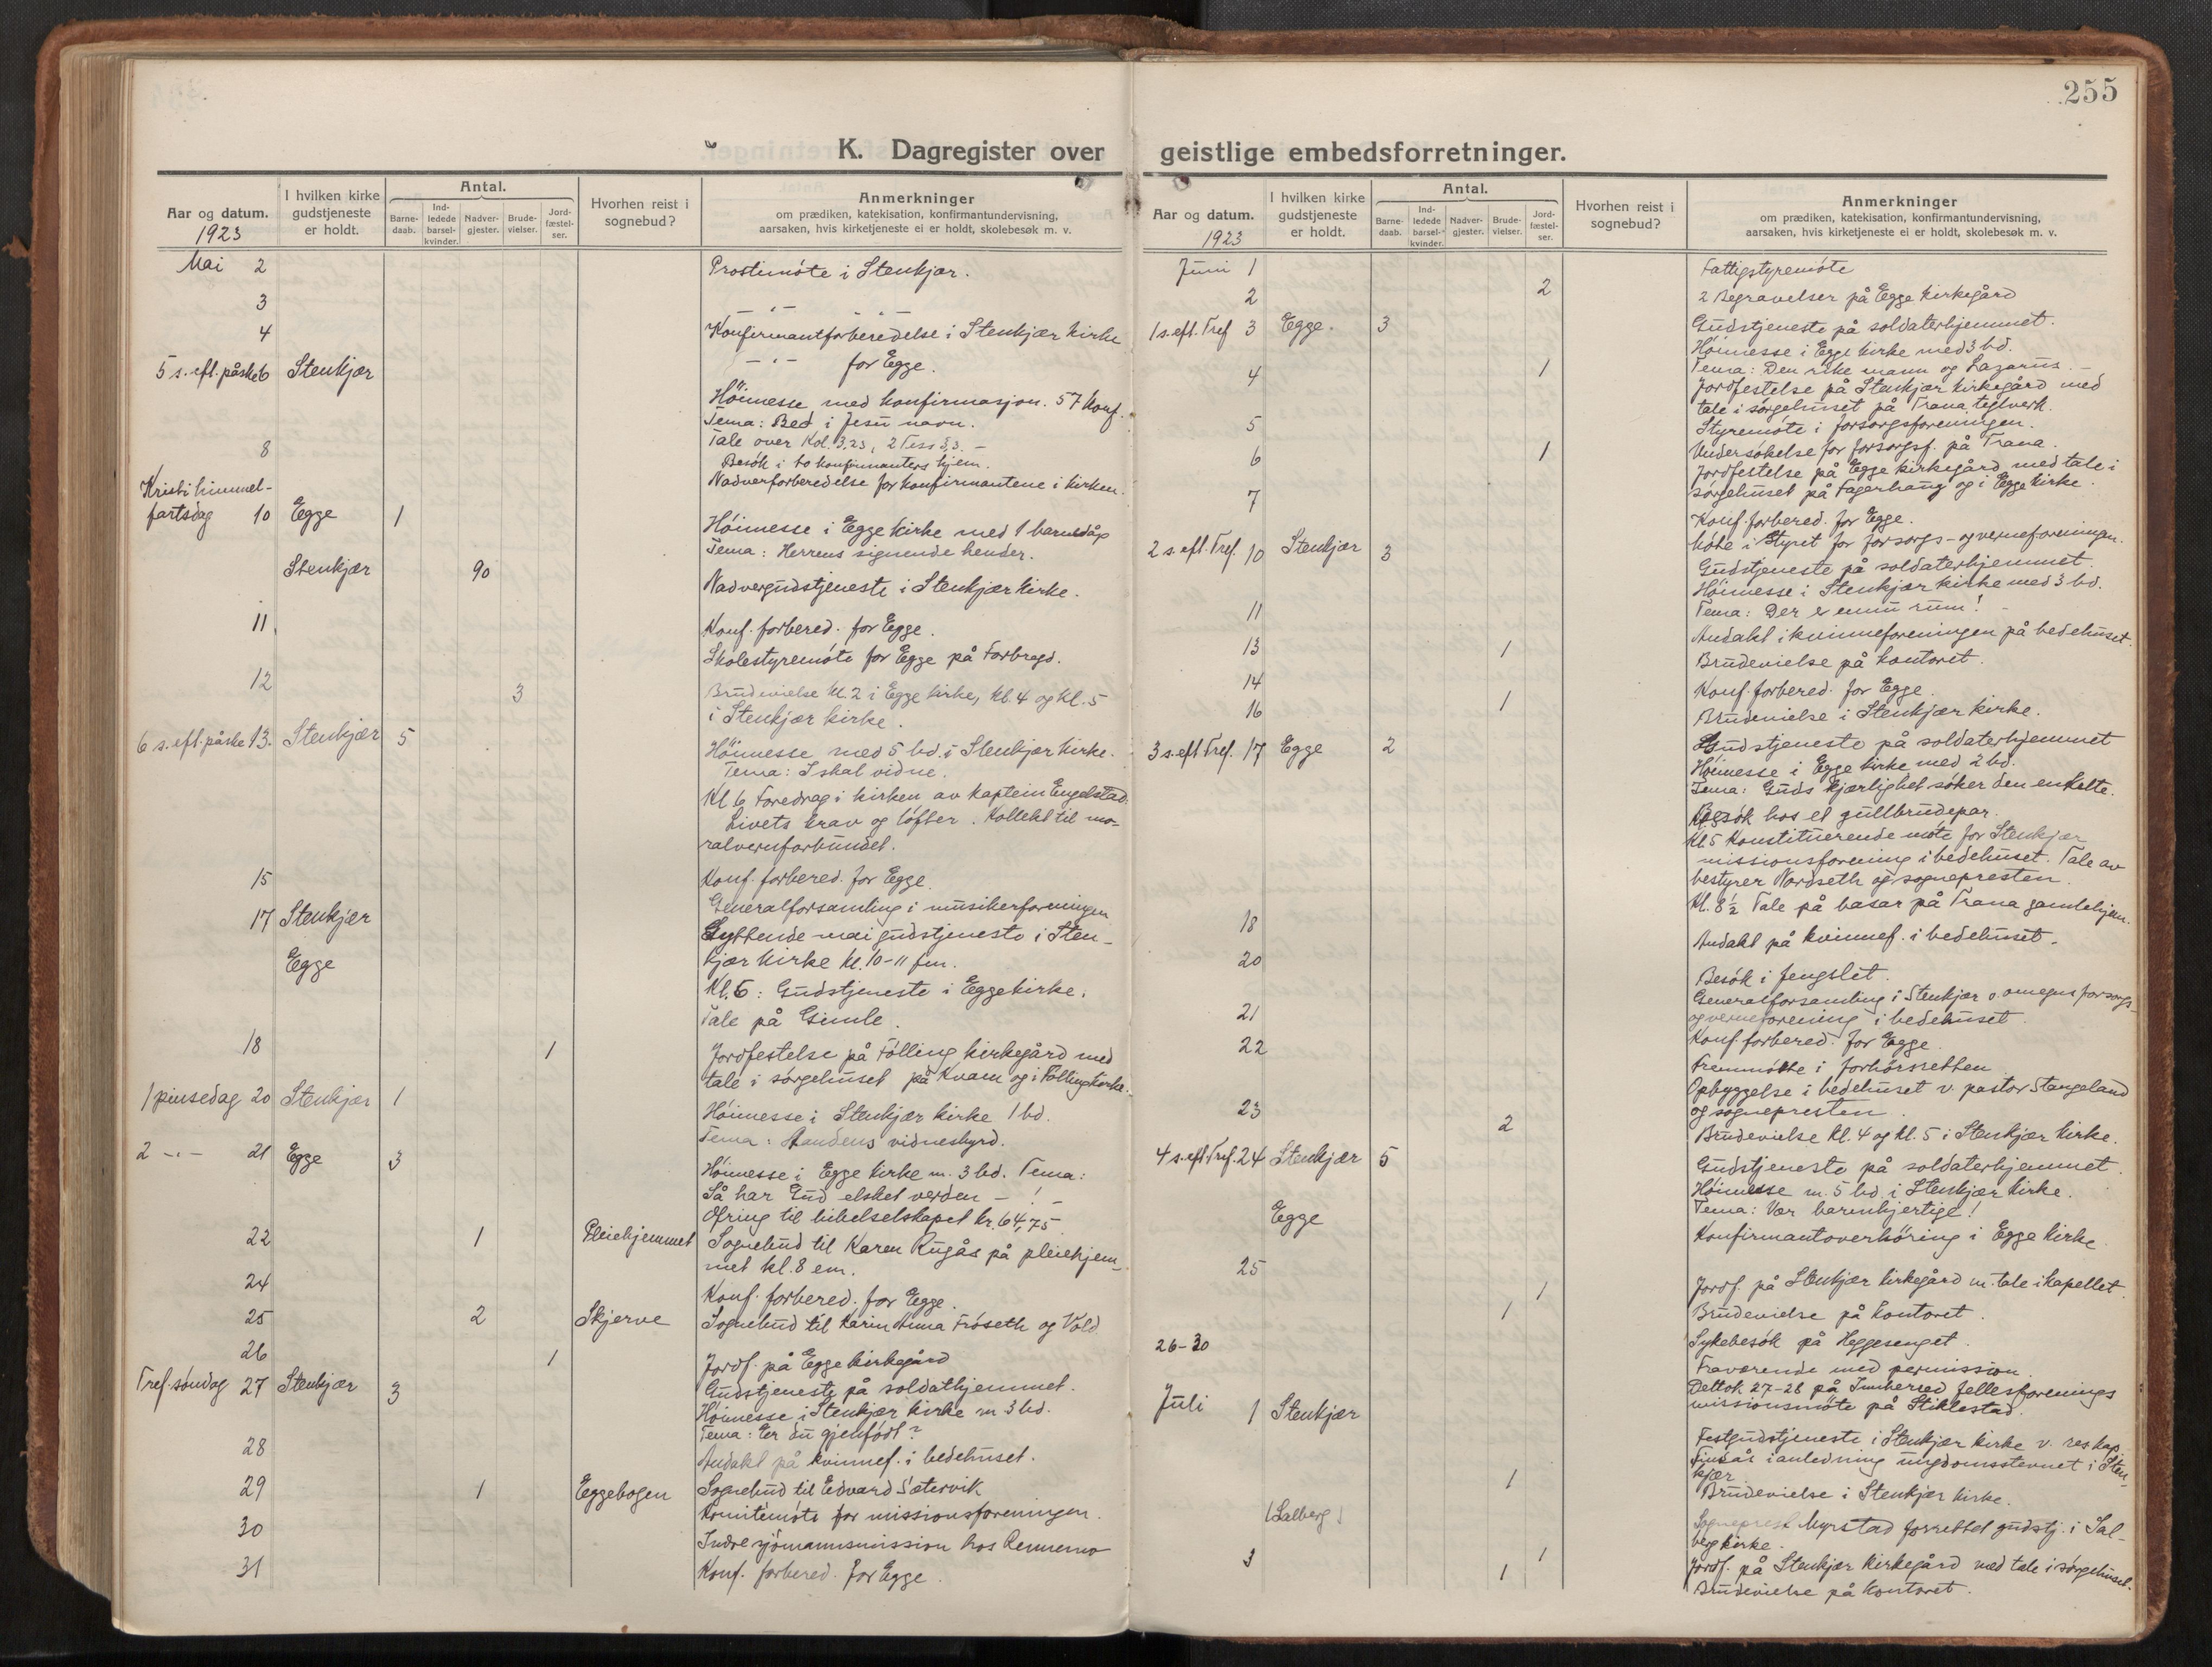 255
K. Dagregister over geistlige embedsforretninger.
Aar og datum.
1923
I hvilken kirke gudstjeneste er holdt.
Antal.
Barnedaab.
Indledede barselkvinder.
Nadvergjester.
Brudevielser.
Jordfæstelser.
Hvorhen reist i sognebud?
Anmerkninger
om prædiken, katekisation, konfirmantundervisning,
aarsaken, hvis kirketjeneste ei er holdt, skolebesøk m. v.
Mai 2 Prostimöte i Stenkjær.
3 — „ — — „ —
4 Konfirmantforberedelse i Stenkjær kirke
— „ — for Egge.
5 s. eft. påske 6 Stenkjær
Höimesse med konfirmasjon. 57 konf.
Tema: Bed i Jesu navn.
Tale over Kol 3.23, 2 Tess 3.3. —
8 Besök i to konfirmanters hjem.
Nadverforberedelse for konfirmantene i kirken.
Kristi himmel-
fartsdag 10 Egge 1 Höimesse i Egge kirke med 1 barnedåp
Tema: Herrens signende hender.
Stenkjær 90 Nadvergudstjeneste i Stenkjær kirke.
11 Konf. forbered. for Egge.
Skolestyremöte for Egge på Forbregd.
12 3 Brudevielse kl. 2 i Egge kirke, kl. 4 og kl. 5
i Stenkjær kirke.
6 s. eft. påske 13. Stenkjær 5 Höimesse med 5 bd. i Stenkjær kirke.
Tema: I skal vidne.
Kl 6 Foredrag i kirken av kaptein Engelstad.
Livets krav og löfter. Kollekt til mo-
ralvernforbundet.
15 Konf. forbered. for Egge.
Generalforsamling i musikerforeningen
17 Stenkjær Syttende-mai gudstjeneste i Sten-
kjær kirke kl. 10-11 fm.
Egge Kl. 6: Gudstjeneste i Egge kirke.
Tale på Gimle.
18 1 Jordfestelse på Fölling kirkegård med
tale i sörgehuset på Kvam og i Fölling kirke.
1 pinsedag 20 Stenkjær 1 Höimesse i Stenkjær kirke 1 bd.
Tema: Aandens vidnesbyrd.
2 — „ — 21 Egge 3 Höimesse i Egge kirke m. 3 bd. Tema:
Så har Gud elsket verden — ! —
Ofring til bibelselskapet kr. 64,75
22 1 Pleiehjemmet Sognebud til Karen Rugås på pleiehjem-
met kl. 8 em.
24 Konf. forbered. for Egge.
25 2 Skjerve Sognebud til Karin Anna Fröseth og Vold
26 1 Jordf. på Egge kirkegård
Tref. söndag 27 Stenkjær 3 Gudstjeneste på soldathjemmet.
Höimesse i Stenkjær kirke m 3 bd.
Tema: Er du gjenfödt?
28 Andakt på kvinnef. i bedehuset.
29 1 Eggebogen Sognebud til Edvard Sætervik
Komitemöte for missionsforeningen.
30 Indre sjömannsmission hos Rennemo
31 Konf. forbered. for Egge.
Aar og datum.
1923
I hvilken kirke gudstjeneste er holdt.
Antal.
Barnedaab.
Indledede barselkvinder.
Nadvergjester.
Brudevielser.
Jordfæstelser.
Hvorhen reist i sognebud?
Anmerkninger
om prædiken, katekisation, konfirmantundervisning,
aarsaken, hvis kirketjeneste ei er holdt, skolebesøk m. v.
Juni 1 Fattigstyremöte
2 2 2 Begravelser på Egge kirkegård
1 s. eft. Tref 3 Egge. 3 Gudstjeneste på soldaterhjemmet.
Höimesse i Egge kirke med 3 bd.
Tema: Den rike mann og Lazarus. —
4 1 Jordfestelse på Stenkjær kirkegård med
tale i sörgehuset på Trana teglverk.
5 Styremöte i forsorgsforeningen.
Undersökelse for forsorgsf. på Trana.
6 1 Jordfestelse på Egge kirkegård med tale i
sörgehuset på Fagerhaug og i Egge kirke.
7 Konf. forbered. for Egge.
Möte i styret for forsorgs- og verneforeningen.
2 s. eft. Tref. 10 Stenkjær 3 Gudstjeneste på soldaterhjemmet.
Höimesse i Stenkjær kirke med 3 bd.
Tema: Der er ennu rum! —
11 Andakt i kvinneforeningen på bedehuset.
13 1 Brudevielse på kontoret.
14 Konf. forbered. for Egge.
16 1 Brudevielse i Stenkjær kirke.
3 s. eft. Tref. 17 Egge 2 Gudstjeneste på soldaterhjemmet
Höimesse i Egge kirke med 2 bd.
Tema: Guds kjærlighet söker den enkelte.
Besök hos et gullbrudepar.
Kl 5 Konstituerende möte for Stenkjær
missionsforening i bedehuset. Tale av
bestyrer Nordseth og sognepresten.
Kl. 8 ½ Tale på basar på Trana gamlehjem.
18 Andakt på kvinnef. i bedehuset.
20 Besök i fengslet.
Generalforsamling i Stenkjær o. omegns forsorgs-
og verneforening i bedehuset.
21 Konf. forbered. for Egge
22 Fremmötte i forhörsretten
Opbyggelse i bedehuset v. pastor Stangeland
og sognepresten.
23 2 Brudevielse kl. 4 og kl. 5 i Stenkjær kirke.
4 s. eft. Tref. 24 Stenkjær 5 Gudstjeneste på soldaterhjemmet.
Höimesse m. 5 bd i Stenkjær kirke.
Tema: Vær barmhjertige!
Egge Konfirmantoverhöring i Egge kirke.
25 1 Jordf. på Stenkjær kirkegård m. tale i kapellet.
1 Brudevielse på kontoret.
Sykebesök på Heggesenget.
26-30 Fraværende med permission.
Deltok 27-28 på Innherred fellesforenings
missionsmöte på Stiklestad.
Juli 1 Stenkjær Festgudstjeneste i Stenkjær kirke v. res. kap.
i anledning ungdomsstevnet i Sten-
kjær.
1 Brudevielse i Stenkjær kirke.
(Salberg) Sogneprest Myrstad forrettet gudstj. i Sal-
berg kirke.
3 1 Jordf. på Stenkjær kirkegård med tale i sörgehuset.
1 Brudevielse på kontoret.